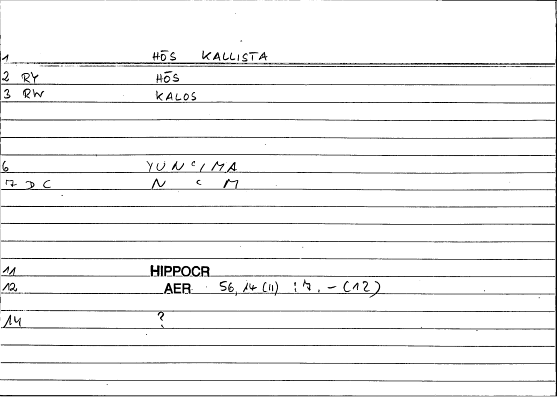 1 HŌS KALLISTA
2 RY HŌS
3 RW KALOS
6 YUNᶜIMA
7 DC N ᶜ M
11 HIPPOCR
12 AER 56, 14 (11) : 7. – (12)
14 ?